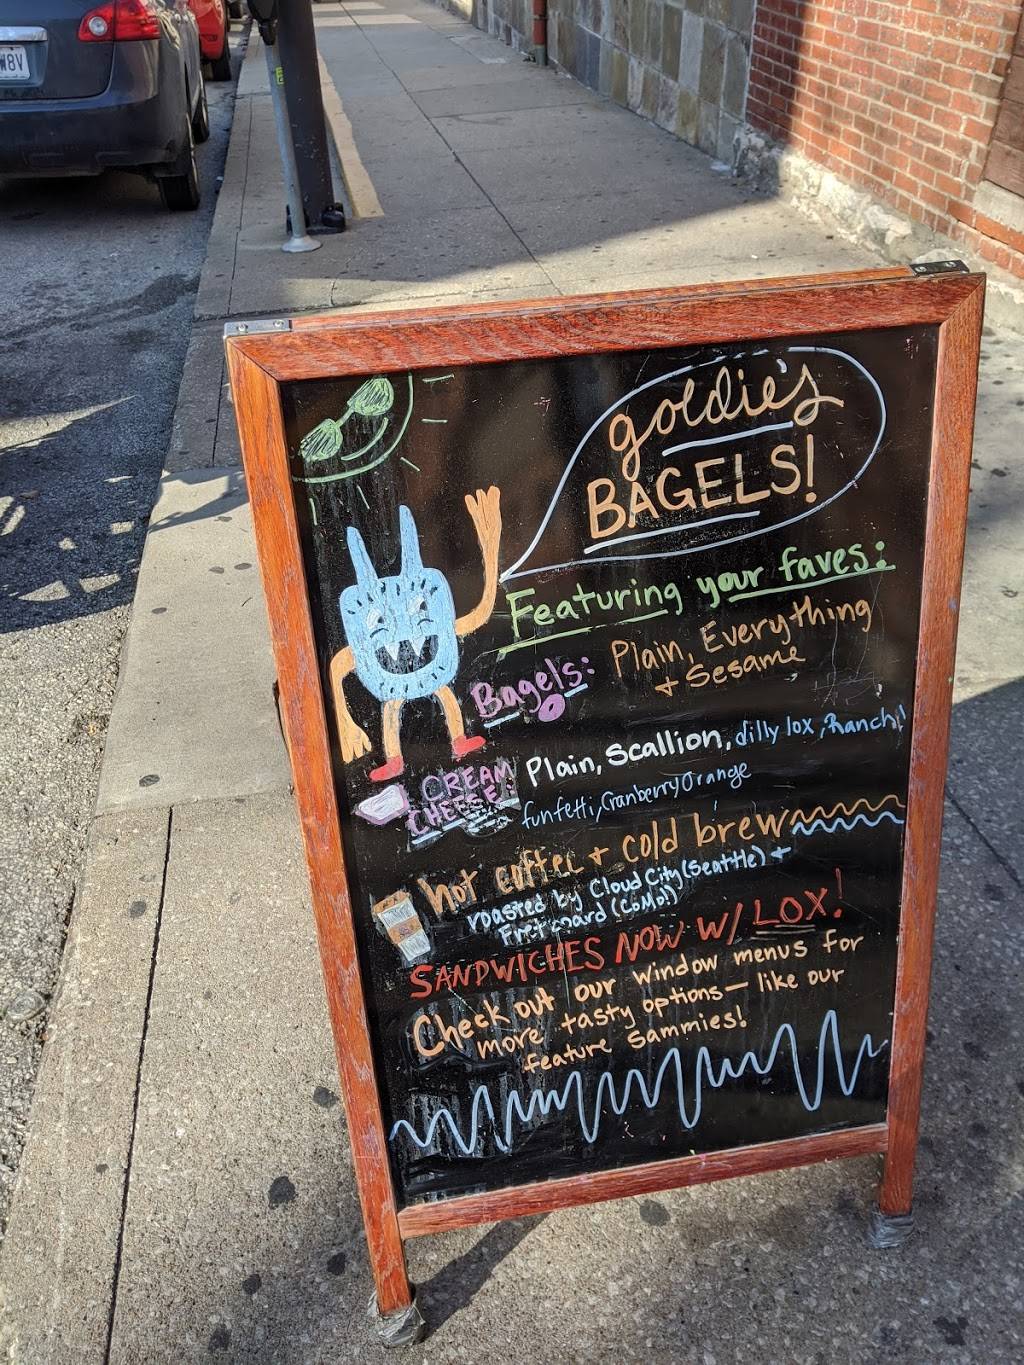 goldie's
BAGELS!
Featuring your faves:
Bagels: Plain, Everything
+ Sesame
CREAM Plain, Scallion, dilly lox, Ranch!
CHEESE: funfetti, Cranberry Orange
hot coffee + cold brew
roasted by Cloud City (Seattle) +
Fretboard (CoMo!)
SANDWICHES NOW W/ LOX!
Check out our window menus for
more tasty options — like our
feature Sammies!
W8V